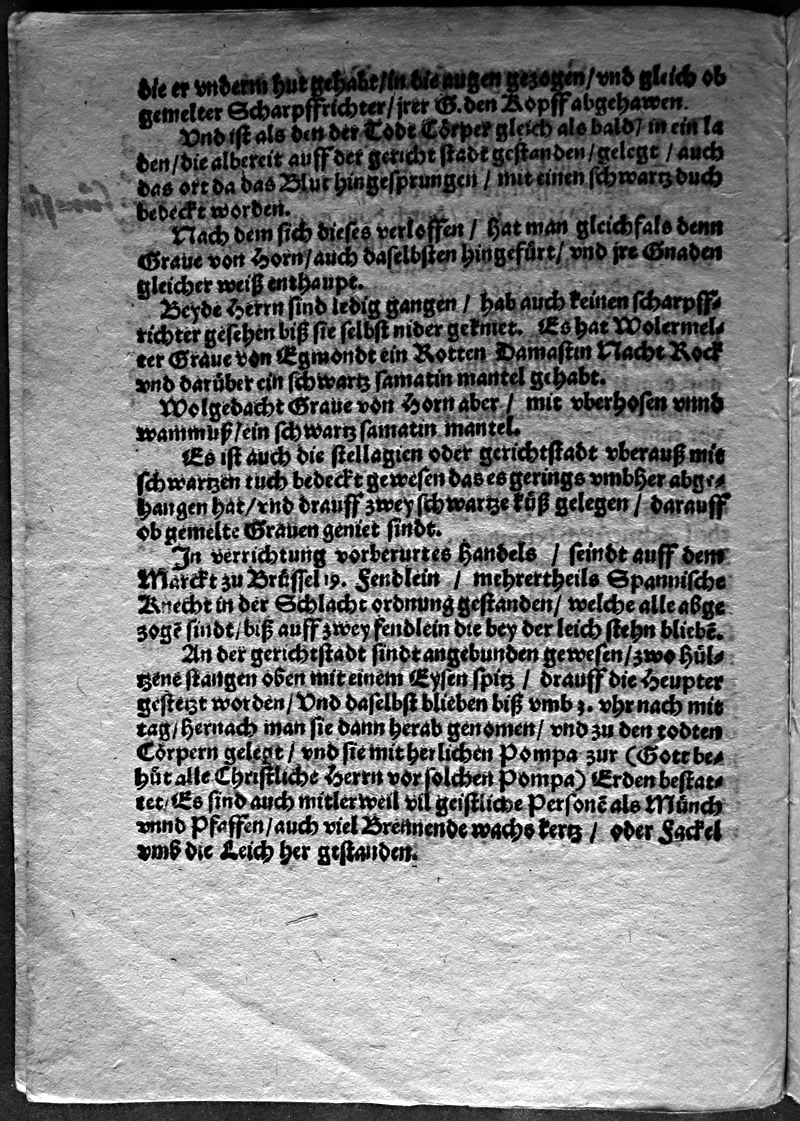 die er vnderm hut gehabt/in die augen gezogen/vnd gleich ob
gemelter Scharpffrichter/jrer G. den Kopff abgehawen.
Vnd ist als den der Todt Cörper gleich als bald/ in ein la
den/die albereit auff der gericht stadt gestanden/gelegt / auch
das ort da das Blut hingesprungen / mit einen schwartz duch
bedeckt worden.
Nach dem sich dieses verloffen / hat man gleichfals denn
Graue von Horn/auch daselbsten hingefürt/ vnd jre Gnaden
gleicher weiß enthaupt.
Beyde Herrn sind ledig gangen / hab auch keinen scharpff-
richter gesehen biß sie selbst nider gekniet. Es hat Wolermel-
ter Graue von Egmondt ein Rotten Damastin Nacht Rock
vnd darüber ein schwartz samatin mantel gehabt.
Wolgedacht Graue von Horn aber / mit vberhosen vnnd
wammuß/ein schwartz samatin mantel.
Es ist auch die stellagien oder gerichtstadt vberauß mit
schwartzen tuch bedeckt gewesen das es gerings vmbher abge-
hangen hat/vnd drauff zwey schwartze küß gelegen / darauff
ob gemelte Grauen geniet sindt.
In verrichtung vorberurtes handels / seindt auff dem
Marckt zu Brüssel 19. Fendlein / mehrertheils Spannische
Knecht in der Schlacht ordnung gestanden/ welche alle abge
zogē sindt/biß auff zwey fendlein die bey der leich stehn bliebē.
An der gerichtstadt sindt angebunden gewesen/zwo hül-
tzene stangen oben mit einem Eysen spitz / drauff die Heupter
gestetzt worden/Vnd daselbst blieben biß vmb 3. vhr nach mit
tag/hernach man sie dann herab genomen/ vnd zu den todten
Cörpern gelegt/ vnd sie mit herlichen Pompa zur (Gott be-
hüt alle Christliche Herrn vor solchen Pompa) Erden bestat-
tet/Es sind auch mitlerweil vil geistliche Personē als Münch
vnnd Pfaffen/auch viel Brennende wachs kertz / oder Fackel
vmb die Leich her gestanden.